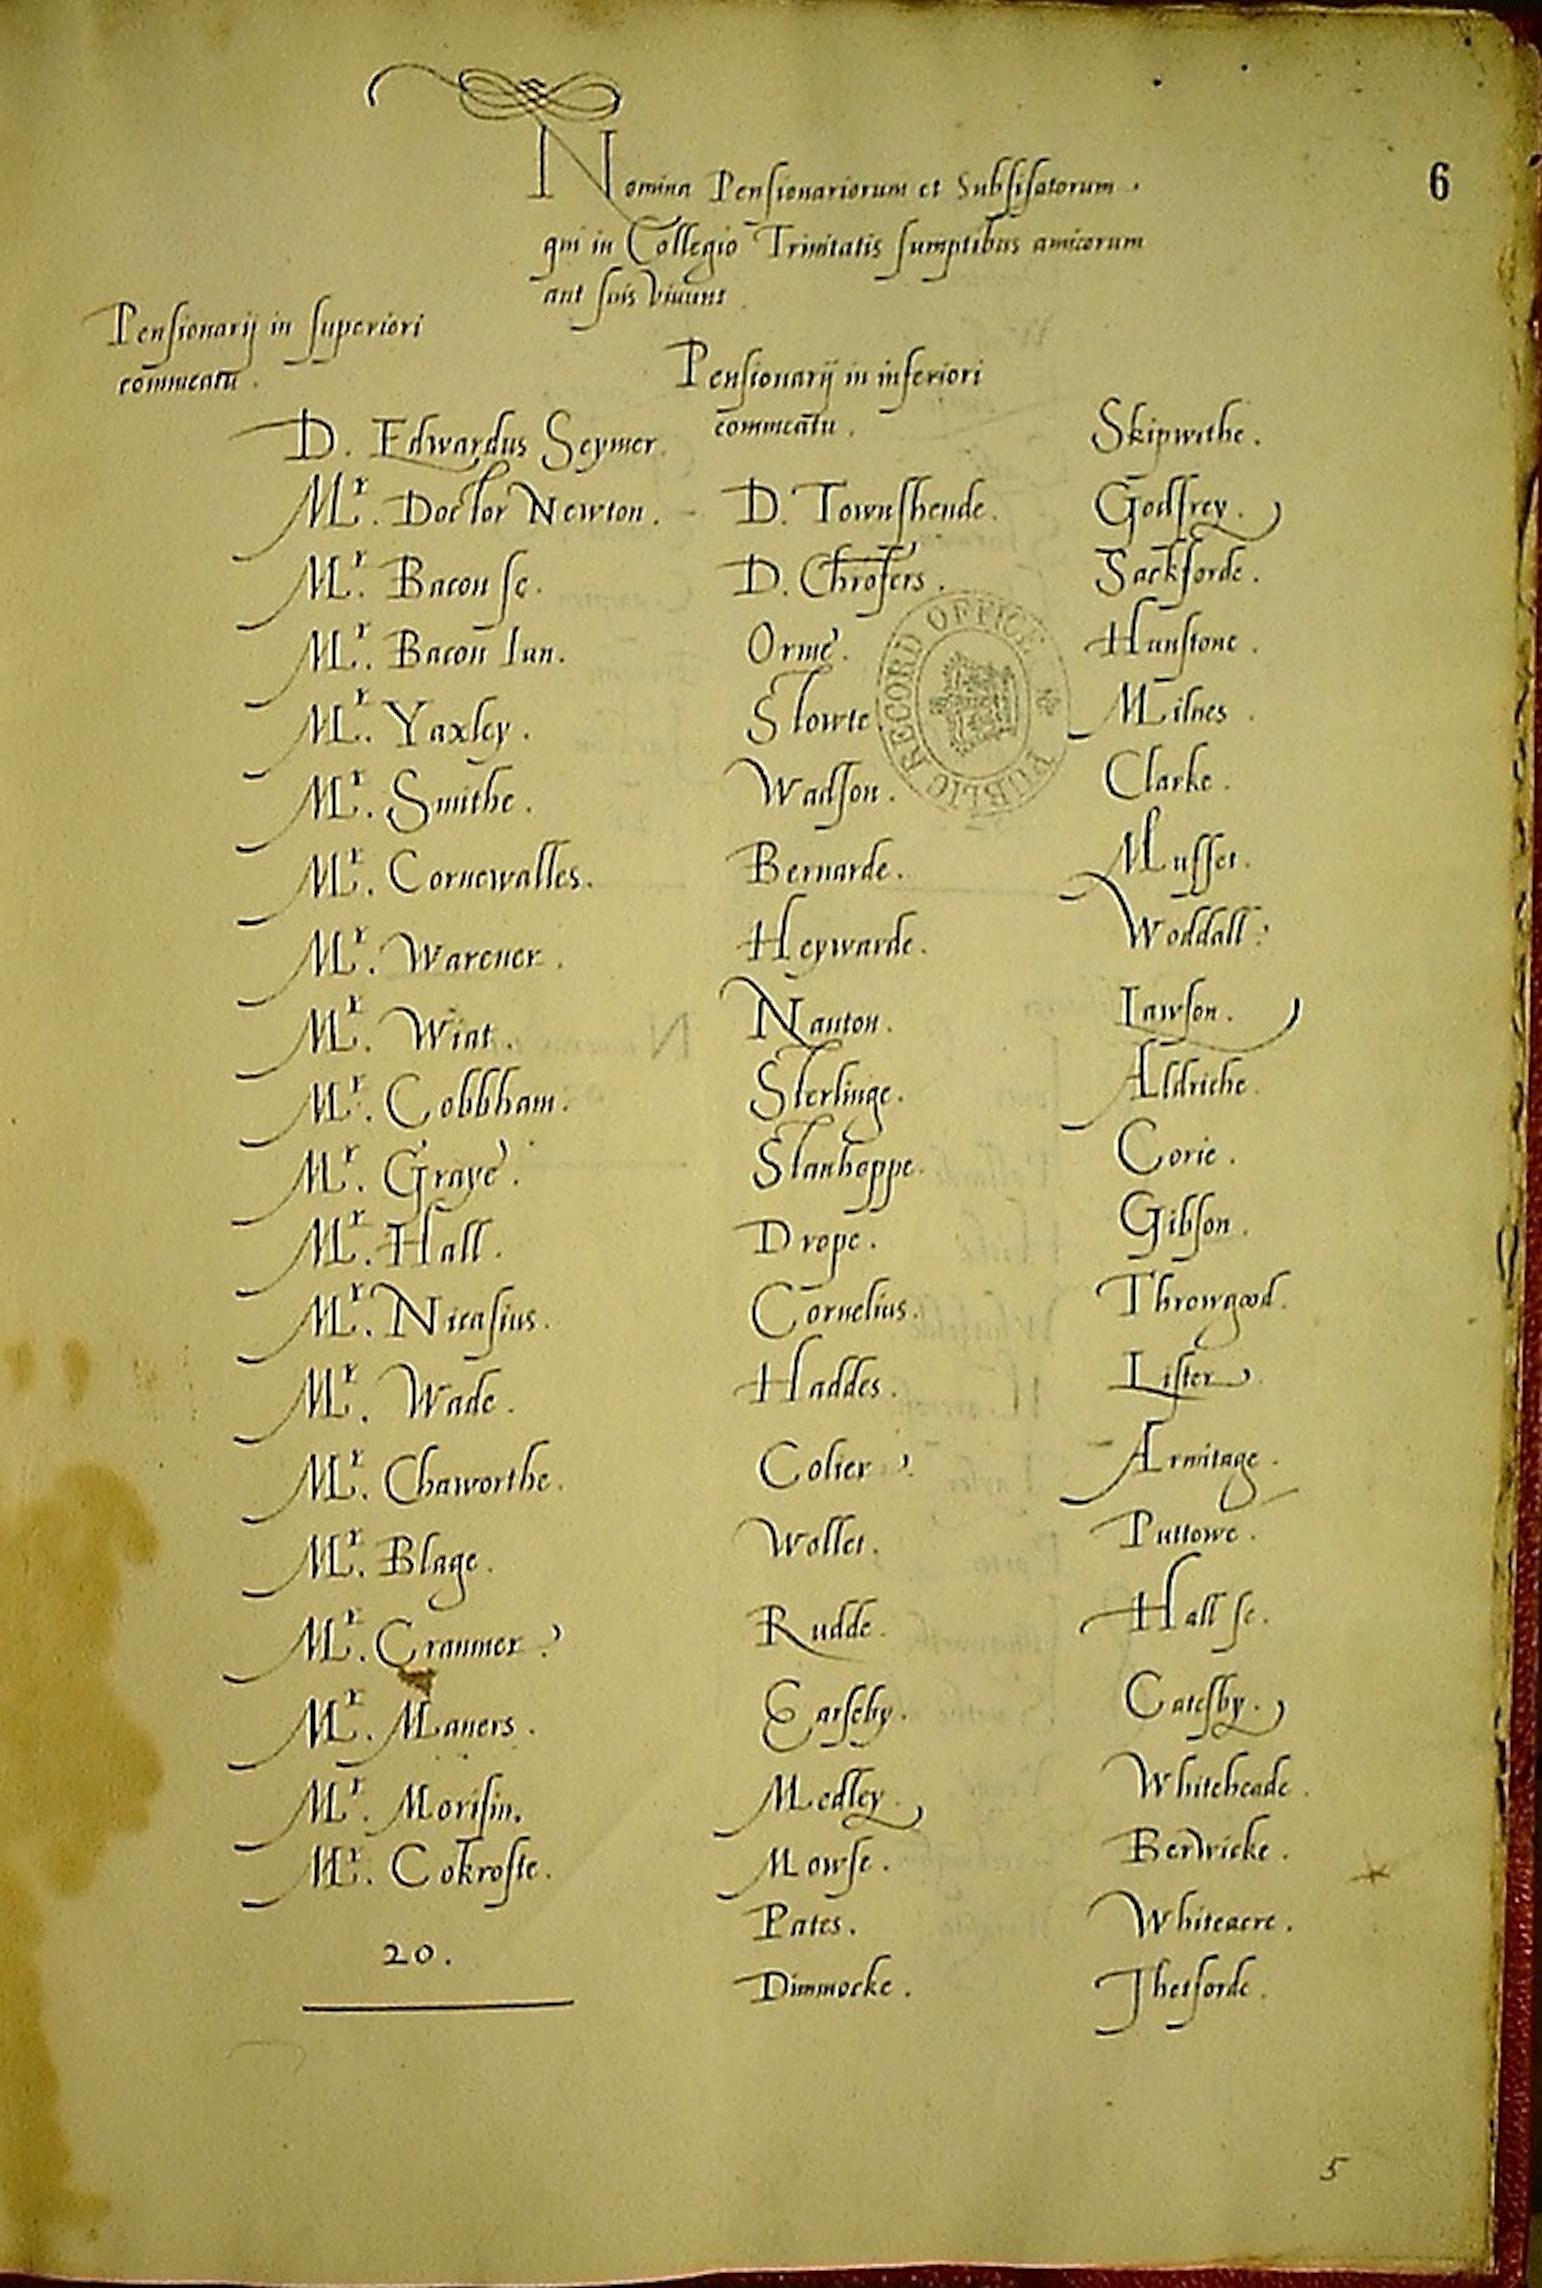 6
Nomina Pensionariorum et Subsisatorum.
qui in Collegio Trinitatis sumptibus amicorum
aut suis vivunt
Pensionarij in superiori
commeatu.
D. Edwardus Seymer.
Mr. Doctor Newton.
Mr. Bacon se.
Mr. Bacon Iun.
Mr. Yaxley.
Mr. Smithe.
Mr. Cornewalles.
Mr. Warener.
Mr. Wiat.
Mr. Cobbham.
Mr. Graye.
Mr. Hall.
Mr. Nicasius.
Mr. Wade.
Mr. Chaworthe.
Mr. Blage.
Mr. Cranmer.
Mr. Maners.
Mr. Morisin.
Mr. Cokrofte.
20.
Pensionarij in inferiori
commeatu.
D. Townshende.
D. Chrofers.
Orme.
Slowte
Wadson.
Bernarde.
Heywarde.
Nauton.
Sterlinge.
Stanhoppe.
Drope.
Cornelius.
Haddes.
Colier.
Wollet.
Rudde.
Earseby.
Medley.
Mowse.
Pates.
Dimmocke.
Skipwithe.
Godfrey.
Sackforde.
Hunstone.
Milnes.
Clarke.
Muffet.
Woddall.
Lawson.
Aldriche.
Corie.
Gibson.
Throwgood.
Lister.
Armitage.
Puttowe.
Hall se.
Catesby.
Whiteheade.
Berwicke.
Whiteacre.
Thetforde.
PUBLIC RECORD OFFICE
5